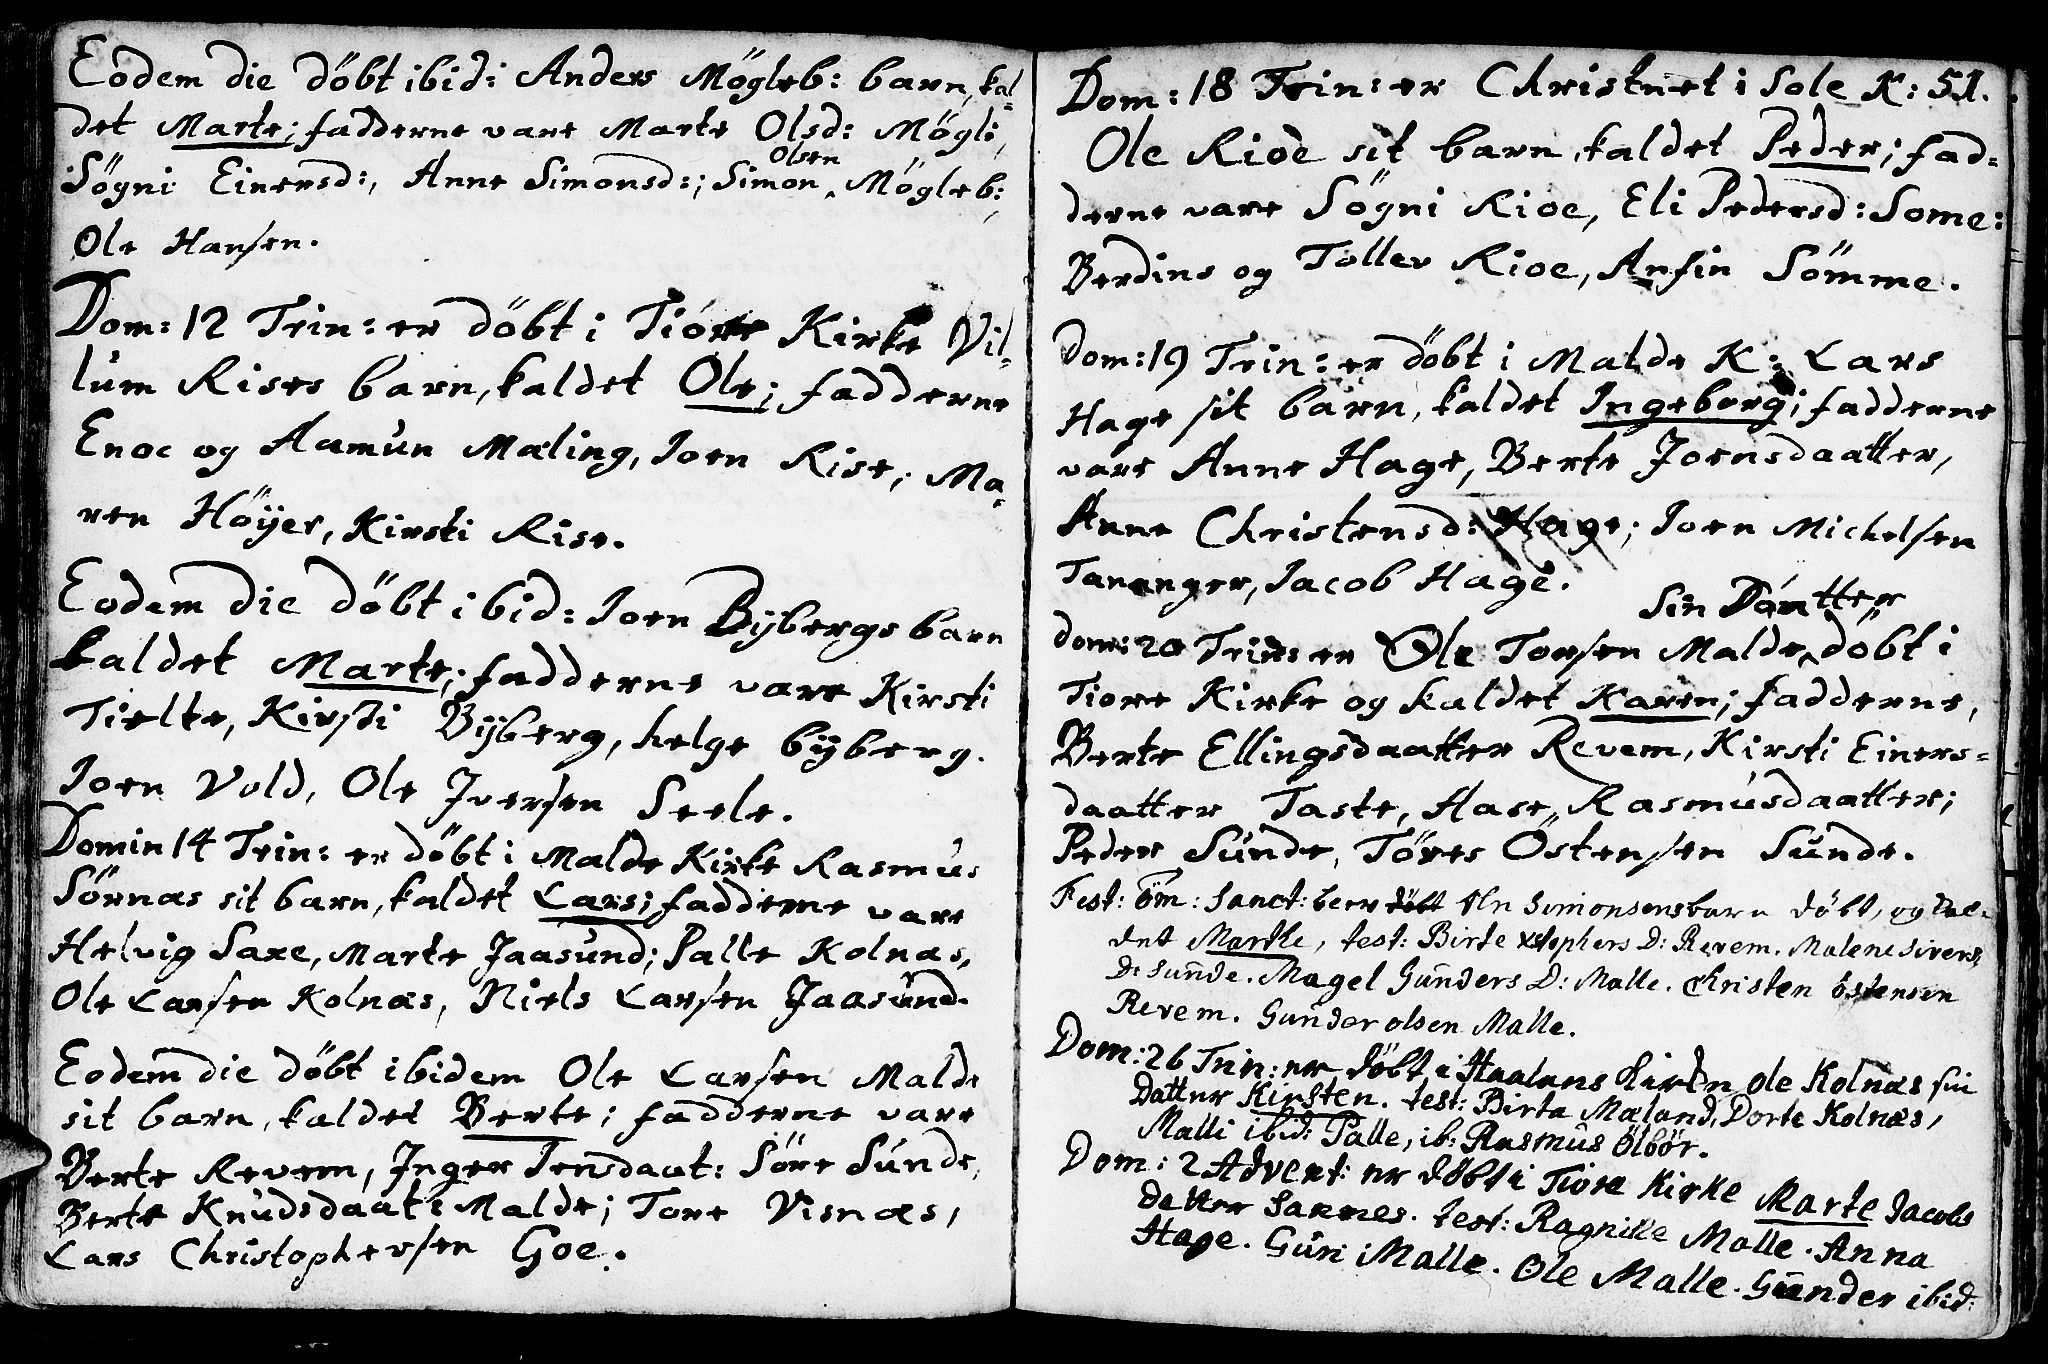 Eodem die döbt ibid: Anders Mögleb: barn, kal-
det Marte; fadderne vare Marte Olsd: Mögli,
Sögni Einersd:, Anne Simonsd:; Simon Olsen Mögleb:,
Ole Hansen.
Dom: 12 Trin: er döbt i Tiöre Kirke Vil-
lum Rises barn, kaldet Ole; fadderne
Enoc og Aamun Mæling, Joen Rise, Ma-
ren Höÿer, Kirsti Rise.
Eodem die döbt ibid: Joen Bÿbergs barn
kaldet Marte; fadderne vare Kirsti
Tielte, Kirsti Bÿberg, helge bÿberg.
Joen Vold, Ole Iversen Seele.
Domin 14 Trin: er döbt i Malde Kirke Rasmus
Sörnæs sit barn, kaldet Lars; fadderne vare
Helvig Saxe, Marte Jaasund; Palle Kolnæs,
Ole Larsen Kolnæs, Niels Larsen Jaasund.
Eodem die döbt ibidem Ole Larsen Malde
sit barn, kaldet Berte; fadderne vare
Berte Revem, Inger Jensdaat: Söre Sunde,
Berte Knudsdaat: Malde; Tore Visnæs,
Lars Christophersen Goe.
Dom: 18 Trin: er Christnet i Sole K: 51.
Ole Rioe sit barn, kaldet Peder; fad-
derne vare Sögni Rioe, Eli Pedersd: Some:
Berdins og Tollev Rioe, Anfin Sömme.
Dom: 19 Trin: er döbt i Malde K: Lars
Hage sit barn, kaldet Ingeborg; fadderne
vare Anne Hage, Berte Joensdaatter,
Anne Christensd: Hage; Joen Michelsen
Tananger, Jacob Hage.
sin Daatter
dom: 20 Trin: er Ole Torsen Malde döbt i
Tiore Kirke og kaldet Karen; fadderne,
Berte Ellingsdaatter Revem, Kirsti Einers-
daatter Taste, Hase Rasmusdaatter;
Peder Sunde, Töres Östensen Sunde.
Fest: öm: Sanct: Simonsens barn döbt, og kal-
det Marthe, test: Birte xstophers D: Revem. Malene Sivers
D: Sunde. Magel Gunders D: Malle. Christen östensen
Revem. Gunder olsen Malle.
Dom: 26 Trin: er döbt i Haalans Kirke Ole Kolnæs sin
Datter Kirsten. test: Birta Mæland, Dorte Kolnæs,
Malli ibid: Palle, ib: Rasmus Ölbör.
Dom: 2 Advent: er döbt i Tiore Kirke Marte Jacobs
datter Sannes. test: Ragnille Malle. Anna
Hage. Guri Malle. Ole Malle. Gunder ibid: